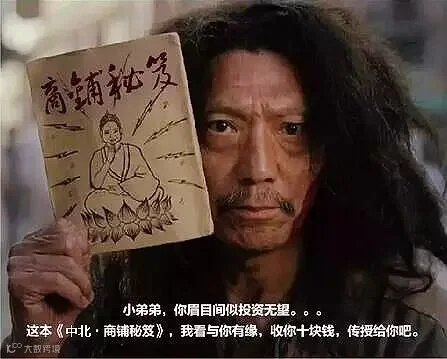 商鋪秘笈
小弟弟,你眉目间似投资无望。。。
这本《中北·商铺秘笈》,我看与你有缘,收你十块钱,传授给你吧。
大数跨境